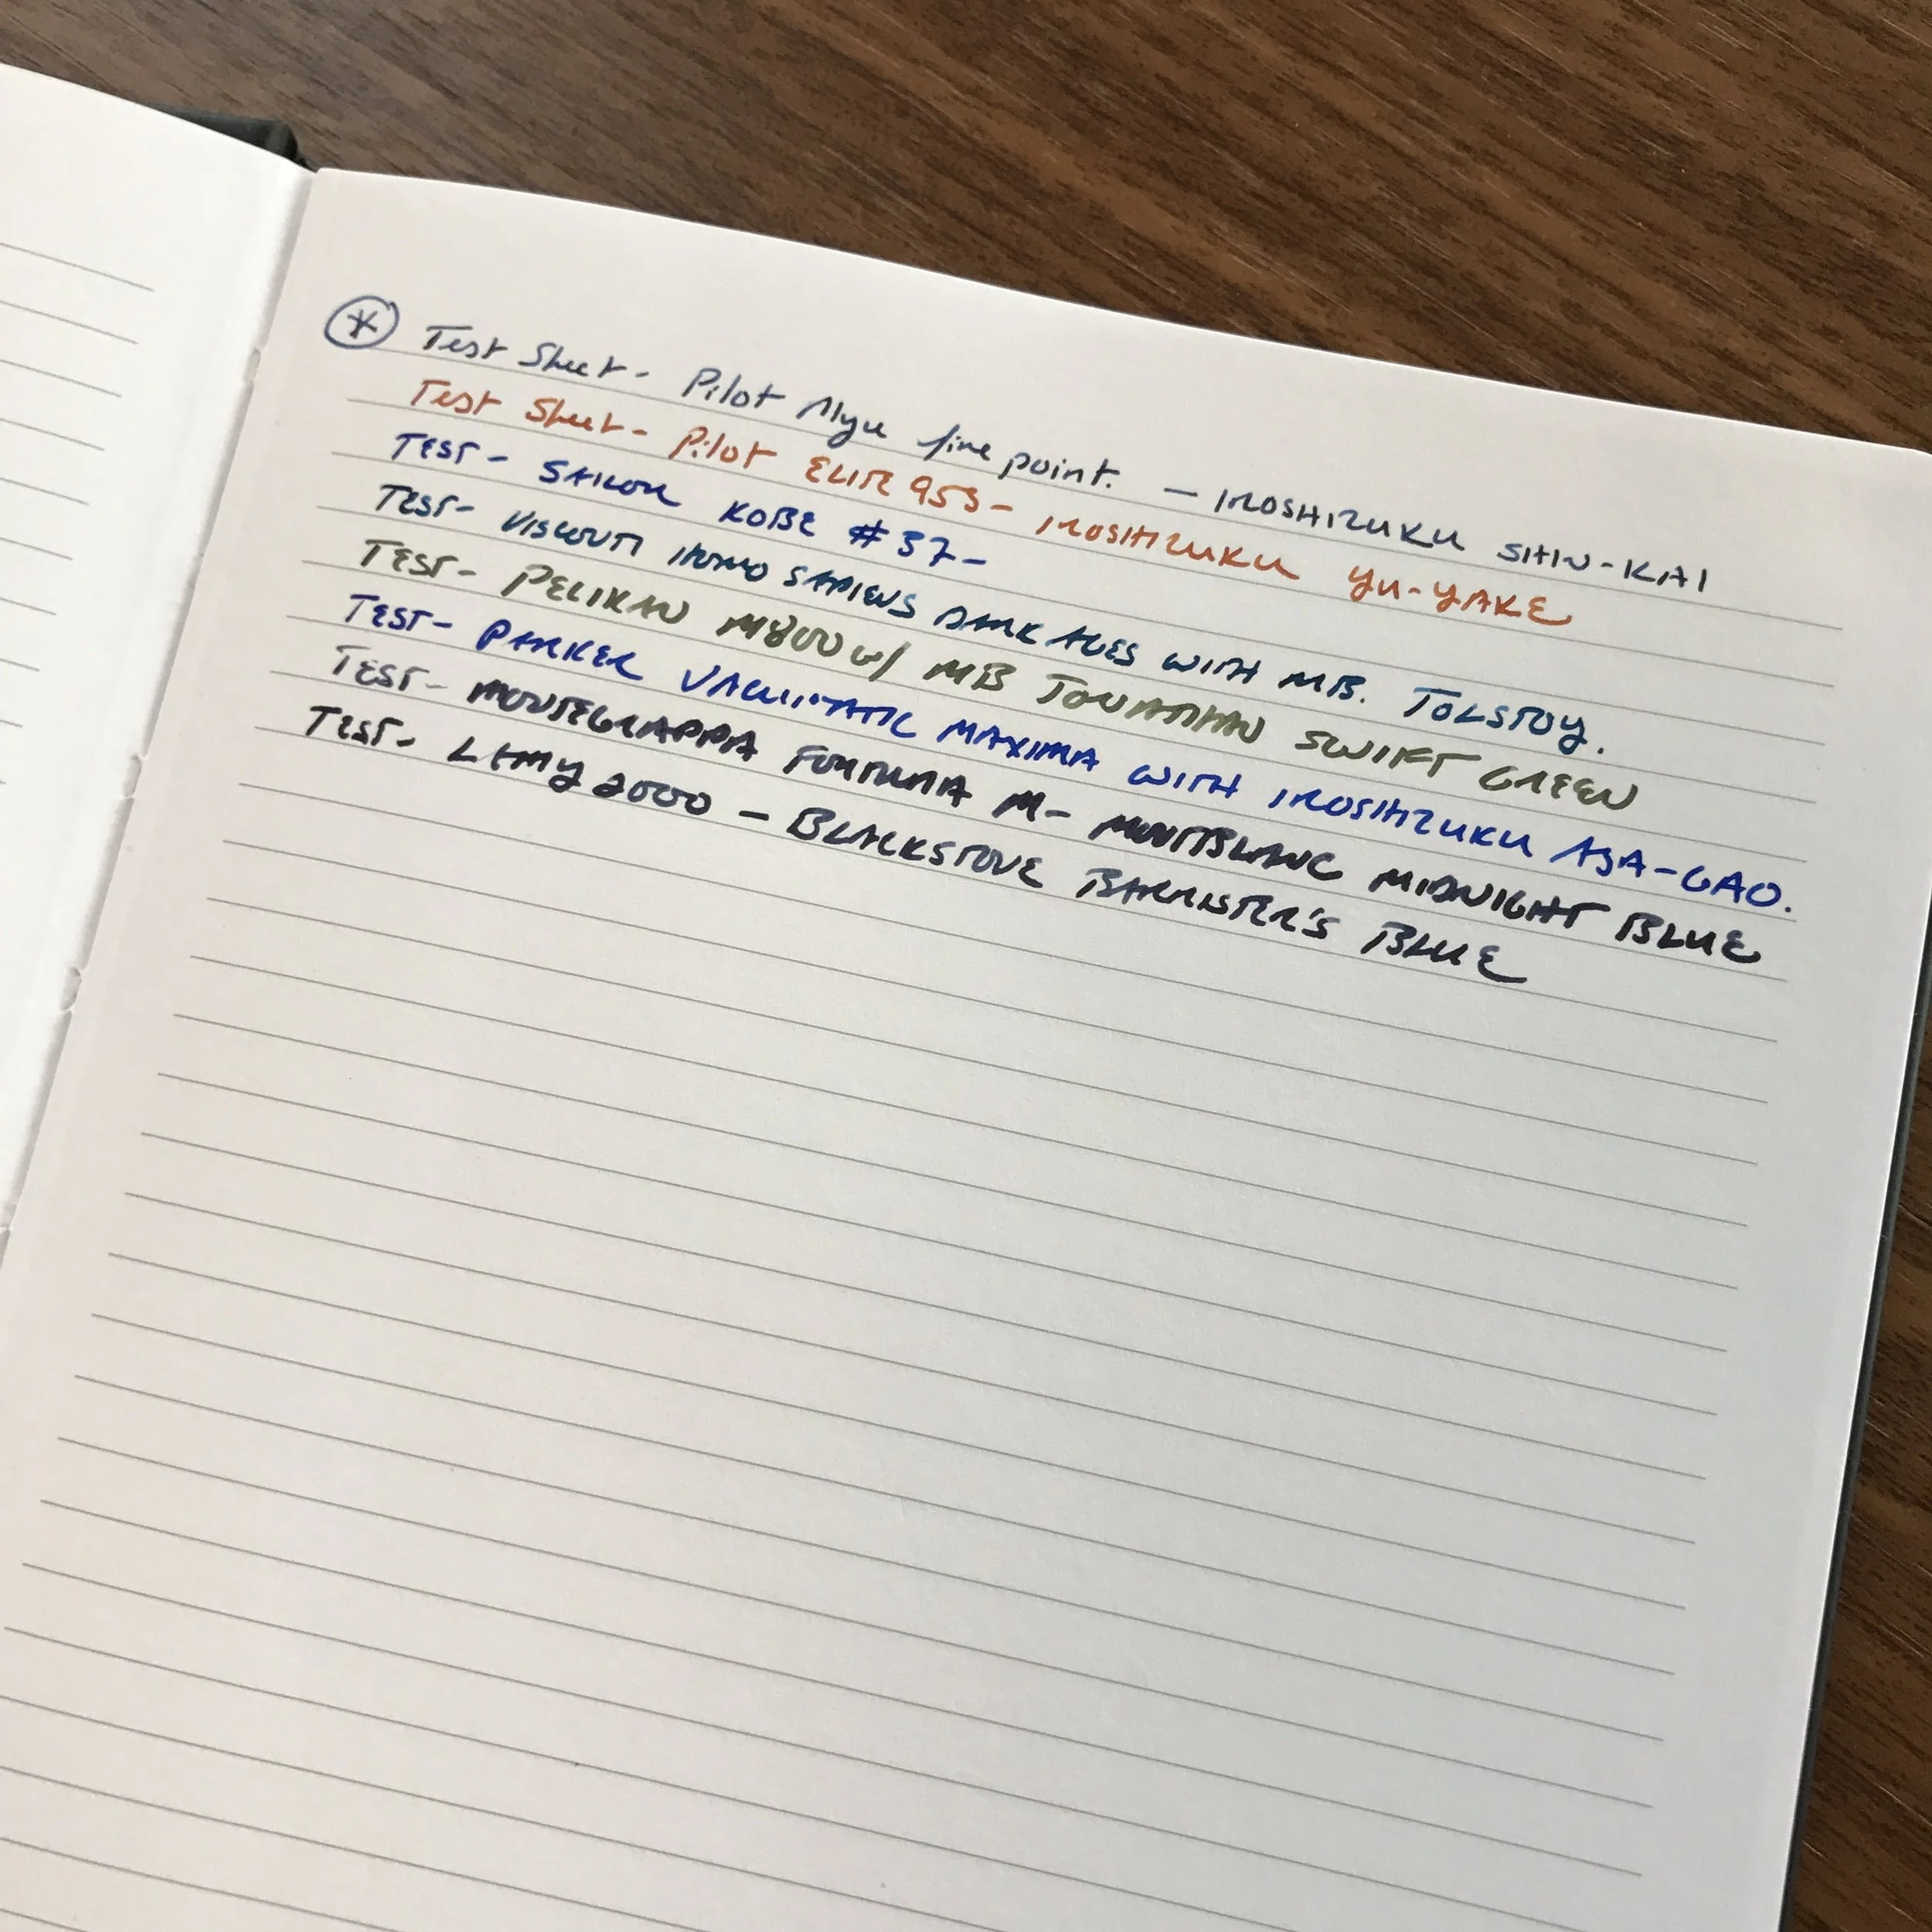 Test Sheet - Pilot Myu fine point. — IROSHIZUKU SHIN-KAI
Test Sheet - Pilot ELITE 95S - IROSHIZUKU YU-YAKE
TEST - SAILOR KOBE #37 -
TEST - VISCONTI HOMO SAPIENS DARK AGES WITH MB. TOLSTOY.
TEST - PELIKAN M800 w/ MB JONATHAN SWIFT GREEN
TEST - PARKER VACUMATIC MAXIMA WITH IROSHIZUKU ASA-GAO.
TEST - MONTEGRAPPA FORTUNA M - MONTBLANC MIDNIGHT BLUE
TEST - LAMY 2000 — BLACKSTONE BARRISTER'S BLUE